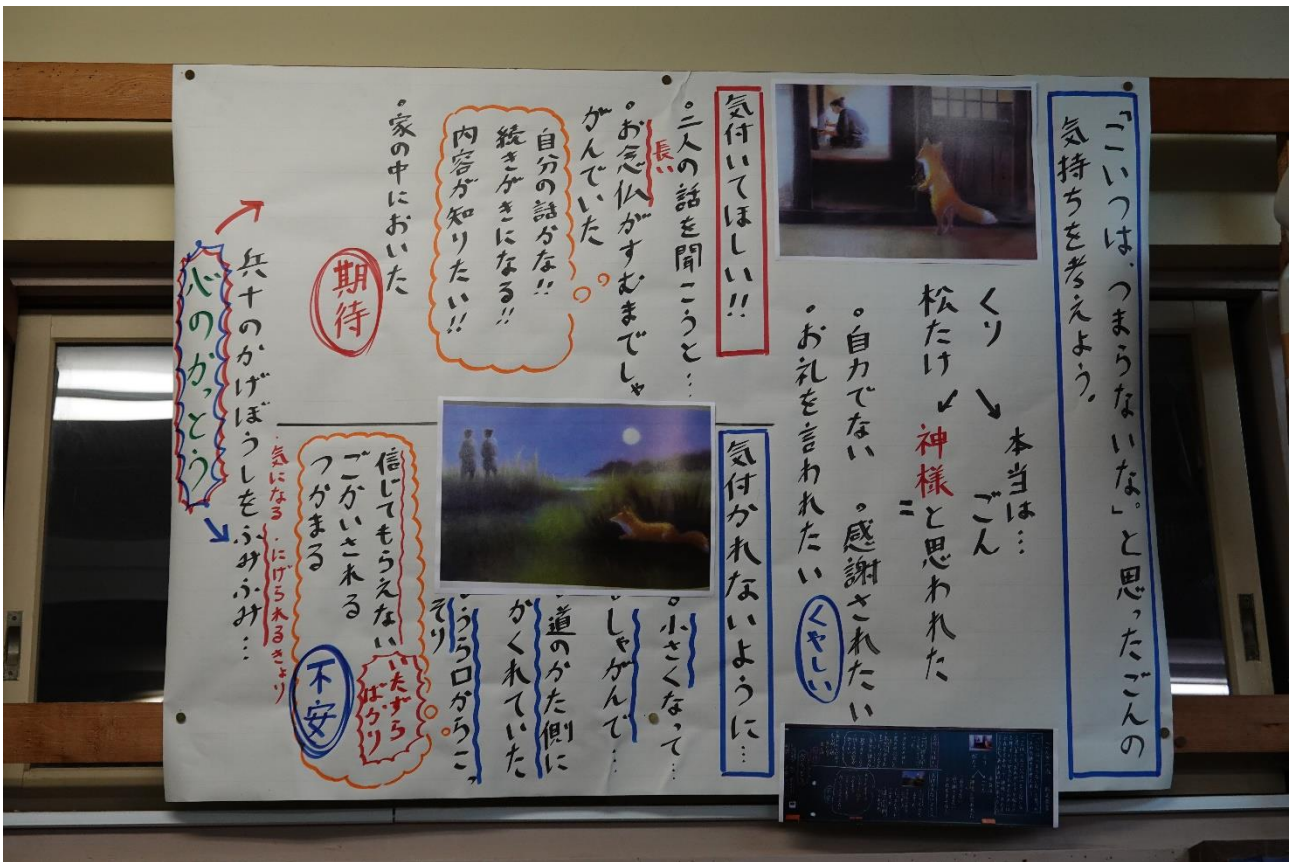 「こいつは、つまらないな。」と思ったごんの
気持ちを考えよう。
本当は…
くり ごん
松たけ 神様と思われた
=
・自力でない ・感謝されたい
・お礼を言われたい くやしい
気付いてほしい!!
・二人の話を聞こうと…
長い
・お念仏がすむまでしゃ
がんでいた
自分の話かな!!
続きがきになる!!
内容が知りたい!!
・家の中においた
期待
気付かれないように…
・小さくなって…
・しゃがんで…
・道のかた側に
かくれていた
・うら口からこっ
そり
信じてもらえない
いたずら
ばかり
ごかいされる
つかまる
不安
・気になる・にげられるきょり
兵十のかげぼうしをふみふみ…
心のかっとう